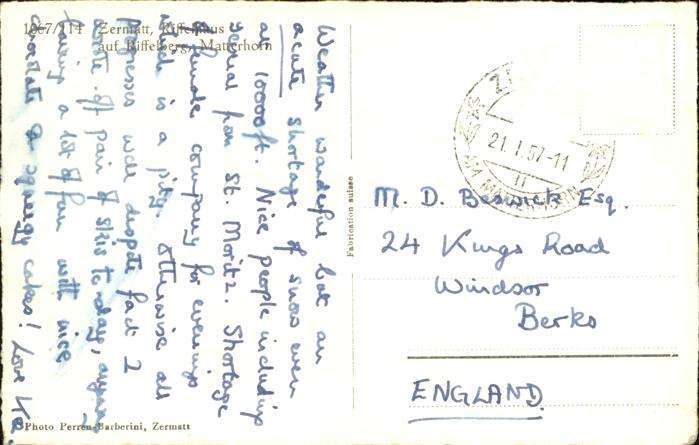 1067/114 Zermatt, Riffelhaus
auf Riffelberg, Matterhorn
Weather wonderful but an
acute shortage of snow even
at 10000 ft. Nice people including
serial from St. Moritz. Shortage
of female company for evenings
which is a pity. Otherwise all
progresses well despite fact I
wrote off pair of skis today,
having a lot of fun with nice
chocolate & squeegy cakes! Love
Photo Perren-Barberini, Zermatt
Fabrication suisse
21.1.57-11
M. D. Beswick Esq.
24 Kings Road
Windsor
Berks
ENGLAND.